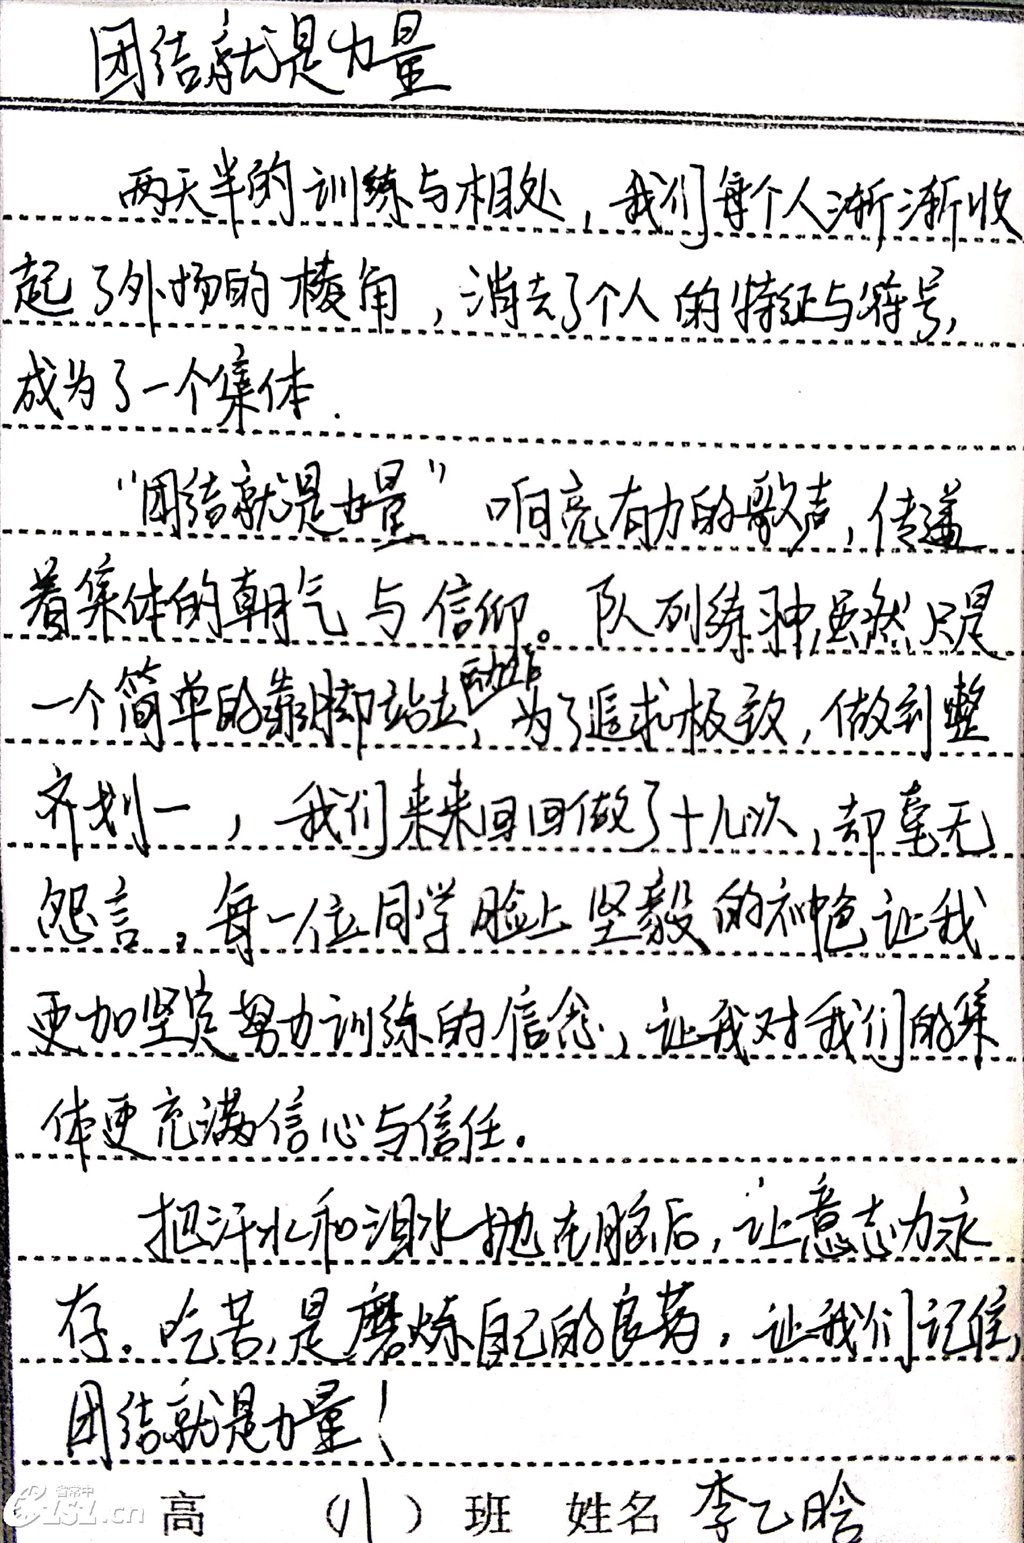 团结就是力量
两天半的训练与相处，我们每个人渐渐收
起了外扬的棱角，消去了个人的特征与符号，
成为了一个集体.
“团结就是力量”响亮有力的歌声，传递
着集体的朝气与信仰。队列练习中，虽然只是
一个简单的靠脚站立动作，为了追求极致，做到整
齐划一，我们来来回回做了十几次，却毫无
怨言，每一位同学脸上坚毅的神色让我
更加坚定努力训练的信念，让我对我们的集
体更充满信心与信任。
把汗水和泪水抛在脑后，让意志力永
存。吃苦，是磨炼自己的良药，让我们记住，
团结就是力量！
高 （ ）班 姓名 李乙晗
省常中